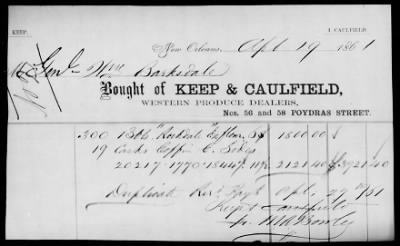 KEEP. I CAULFIELD.
New Orleans, Apl 19 1861
M Genl Wm Barksdale
Bought of KEEP & CAULFIELD,
WESTERN PRODUCE DEALERS,
Nos. 56 and 58 POYDRAS STREET.
300 Bbls Ex flour 1800.00
19 Casks C. Sides
20217-1770-18447 2121 40 3921 40
Duplicate Recd Payt Apl 29
Keep & Caulfield